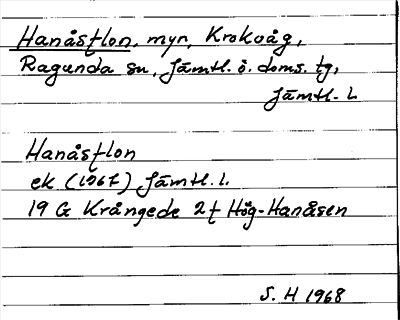 Hanåsflon, myr, Krokvåg,
Ragunda sn, Jämtl. ö. doms. tg,
Jämtl. l.
Hanåsflon
ek (1967) Jämtl. l.
19 G Krångede 2f Hög-Hanåsen
S. H 1968